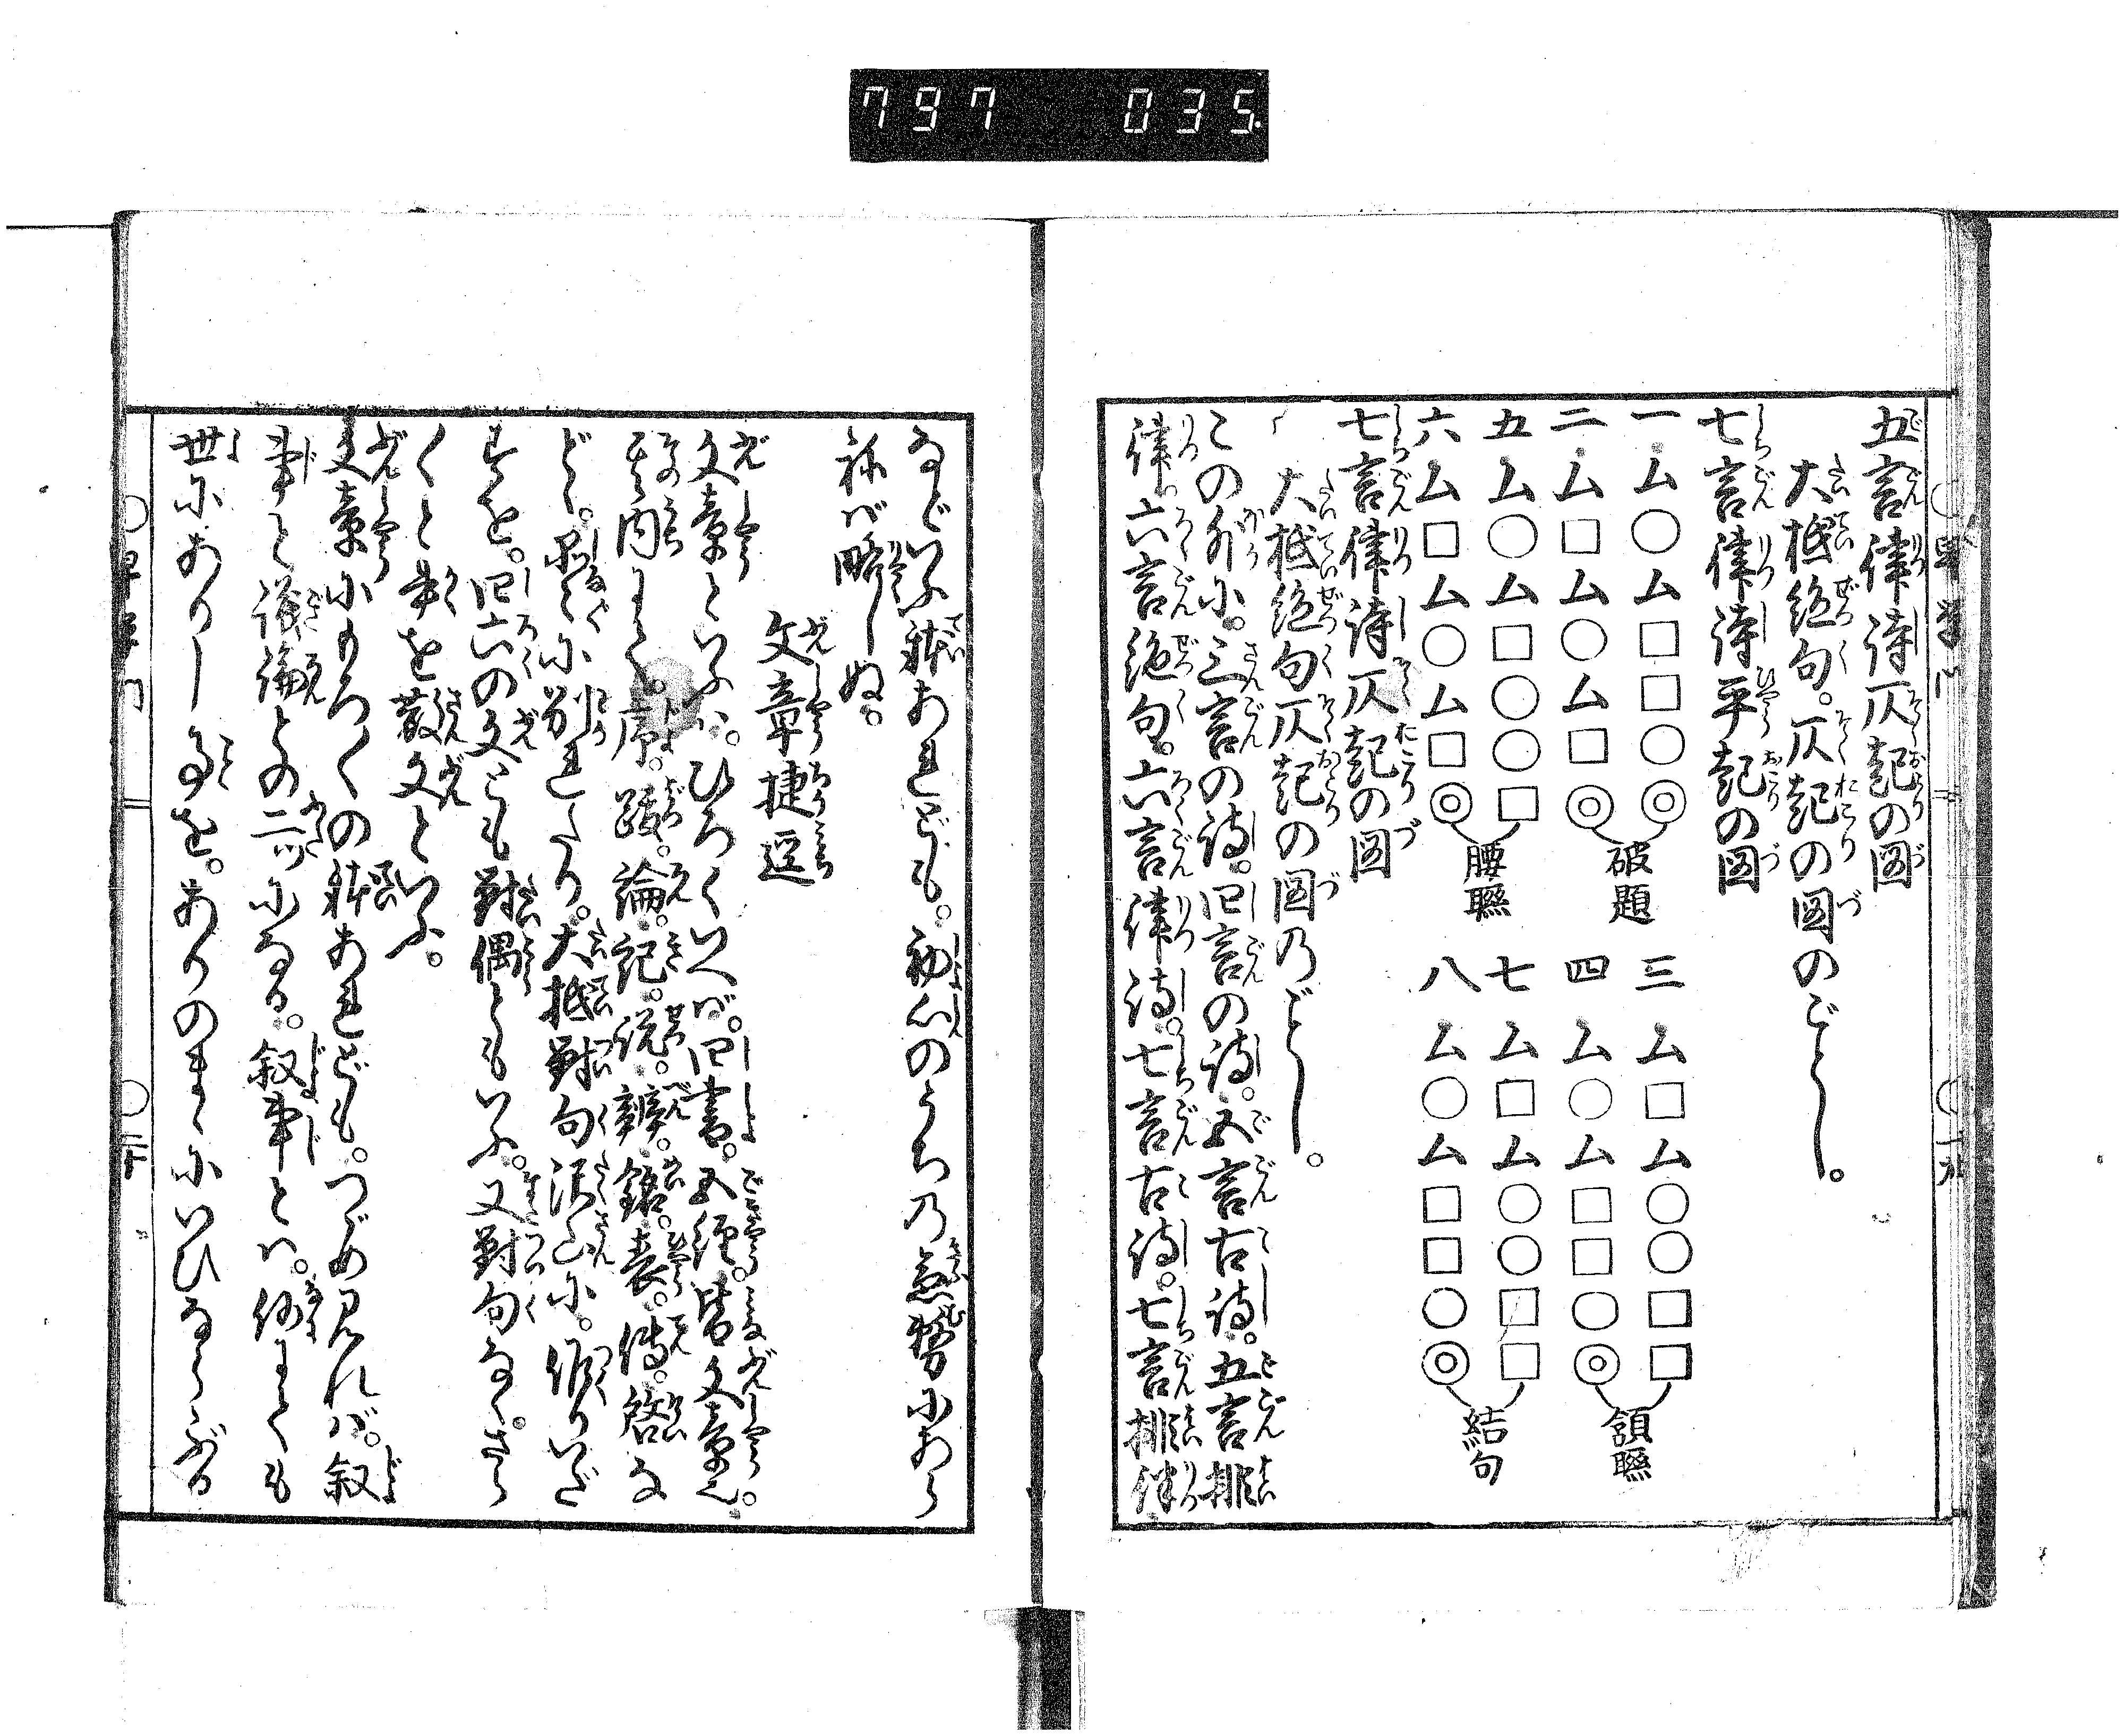 797 035
五言律詩仄起の図
大抵絶句。仄起の図のごとし。
七言律詩平起の図
一ム○ム□□○◎
二ム□ム○ム□◎
破題
三ム□ム○○□□
四ム○ム□□○◎
頷聯
五ム○ム□○○□
六ム□ム○ム□◎
腰聯
七ム□ム○○□□
八ム○ム□□○◎
結句
七言律詩仄起の図
大抵絶句仄起の図のごとし。
この外に。三言の詩。四言の詩。五言古詩。五言排
律。六言絶句。六言律詩。七言古詩。七言排律
などいふ躰あれども。初心のうちの急務にあら
ねば略しぬ。
文章捷逕
文章といふハ。ひろくいへバ。四書。五經。皆文章也。
其内にて。序。跋。論。記。説。辨。銘。表。傳。啓な
ど。品々に別れたり。大抵對句沢山に。作りいだ
すを。四六の文とも對偶ともいふ。又對句なく。さら
〱と書を散文といふ。
文章にもろ〱の躰あれども。つづめ見れバ。叙
事と議論との二ッになる。叙事とハ。何にても
世にありし事を。ありのまゝにいひならぶる